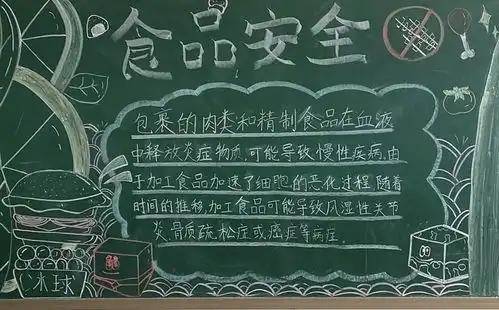 食品安全
包裹的肉类和精制食品在血液
中释放炎症物质,可能导致慢性疾病,由
于加工食品加速了细胞的恶化过程,随着
时间的推移,加工食品可能导致风湿性关节
炎、骨质疏松症或癌症等病症。
冰球